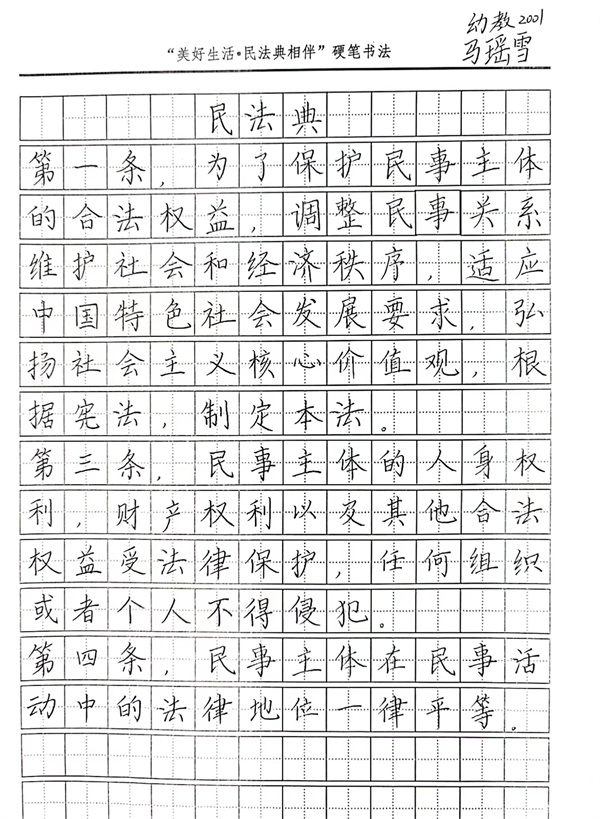 幼教2001
马瑶雪
“美好生活·民法典相伴”硬笔书法
民法典
第一条，为了保护民事主体
的合法权益，调整民事关系
维护社会和经济秩序，适应
中国特色社会发展要求，弘
扬社会主义核心价值观，根
据宪法，制定本法。
第三条，民事主体的人身权
利，财产权利以及其他合法
权益受法律保护，任何组织
或者个人不得侵犯。
第四条，民事主体在民事活
动中的法律地位一律平等。